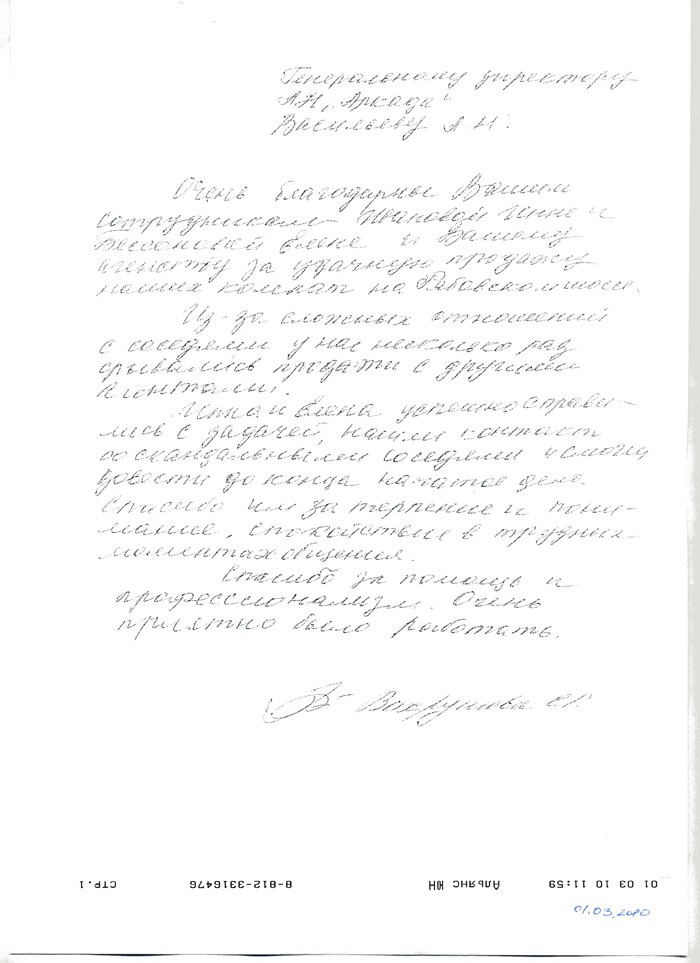 Генеральному директору
АН „Аркада“
Васильеву А Н.
Очень благодарны Вашим
сотрудникам Ивановой Инне и
Бессоновой Елене и Вашему
агенству за удачную продажу
наших комнат на Рябовском шоссе.
Из-за сложных отношений
с соседями у нас несколько раз
срывались продажи с другими
агентами.
Инна и Елена успешно справи-
лись с задачей, нашли контакт
со скандальными соседями и смогли
довести до конца начатое дело.
Спасибо им за терпение и пони-
мание, спокойствие в трудных
моментах общения.
Спасибо за помощь и
профессионализм. Очень
приятно было работать.
Вахрушева
01 03 10 11:59 Альянс ЮН 8-812-3316476 СТР.1
01.03.2010